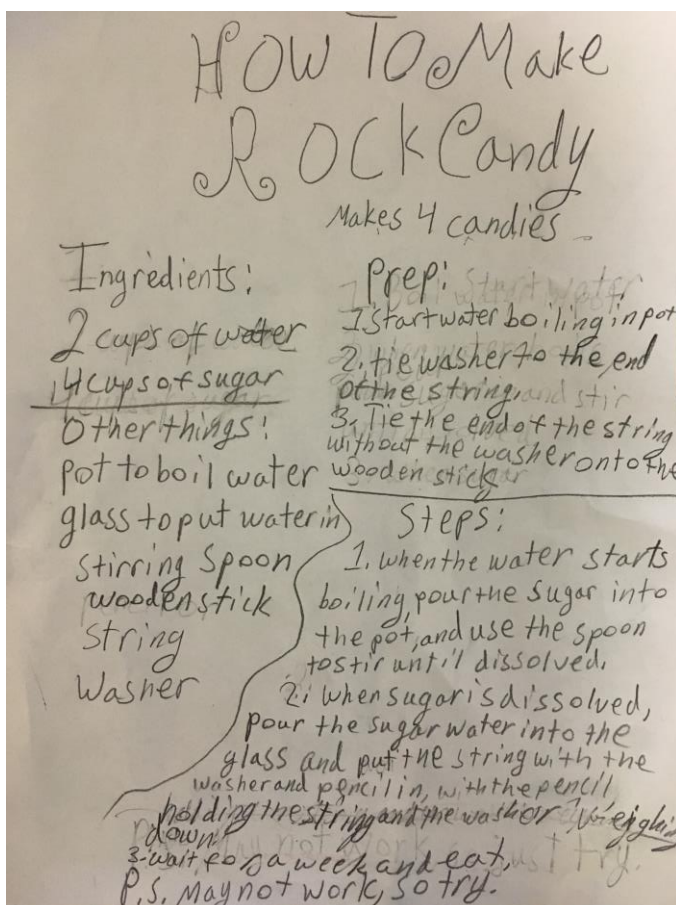 How To Make
Rock Candy
Makes 4 candies
Ingredients:
2 cups of water
4 cups of sugar
Other things:
pot to boil water
glass to put water in
stirring spoon
wooden stick
string
washer
Prep:
1. start water boiling in pot
2. tie washer to the end
of the string.
3. Tie the end of the string
without the washer onto the
wooden stick
Steps:
1. when the water starts
boiling, pour the sugar into
the pot, and use the spoon
to stir until dissolved.
2. when sugar is dissolved,
pour the sugar water into the
glass and put the string with the
washer and pencil in, with the pencil
holding the string and the washer weighing
down.
3. wait for a week and eat.
P.S. May not work, so try.